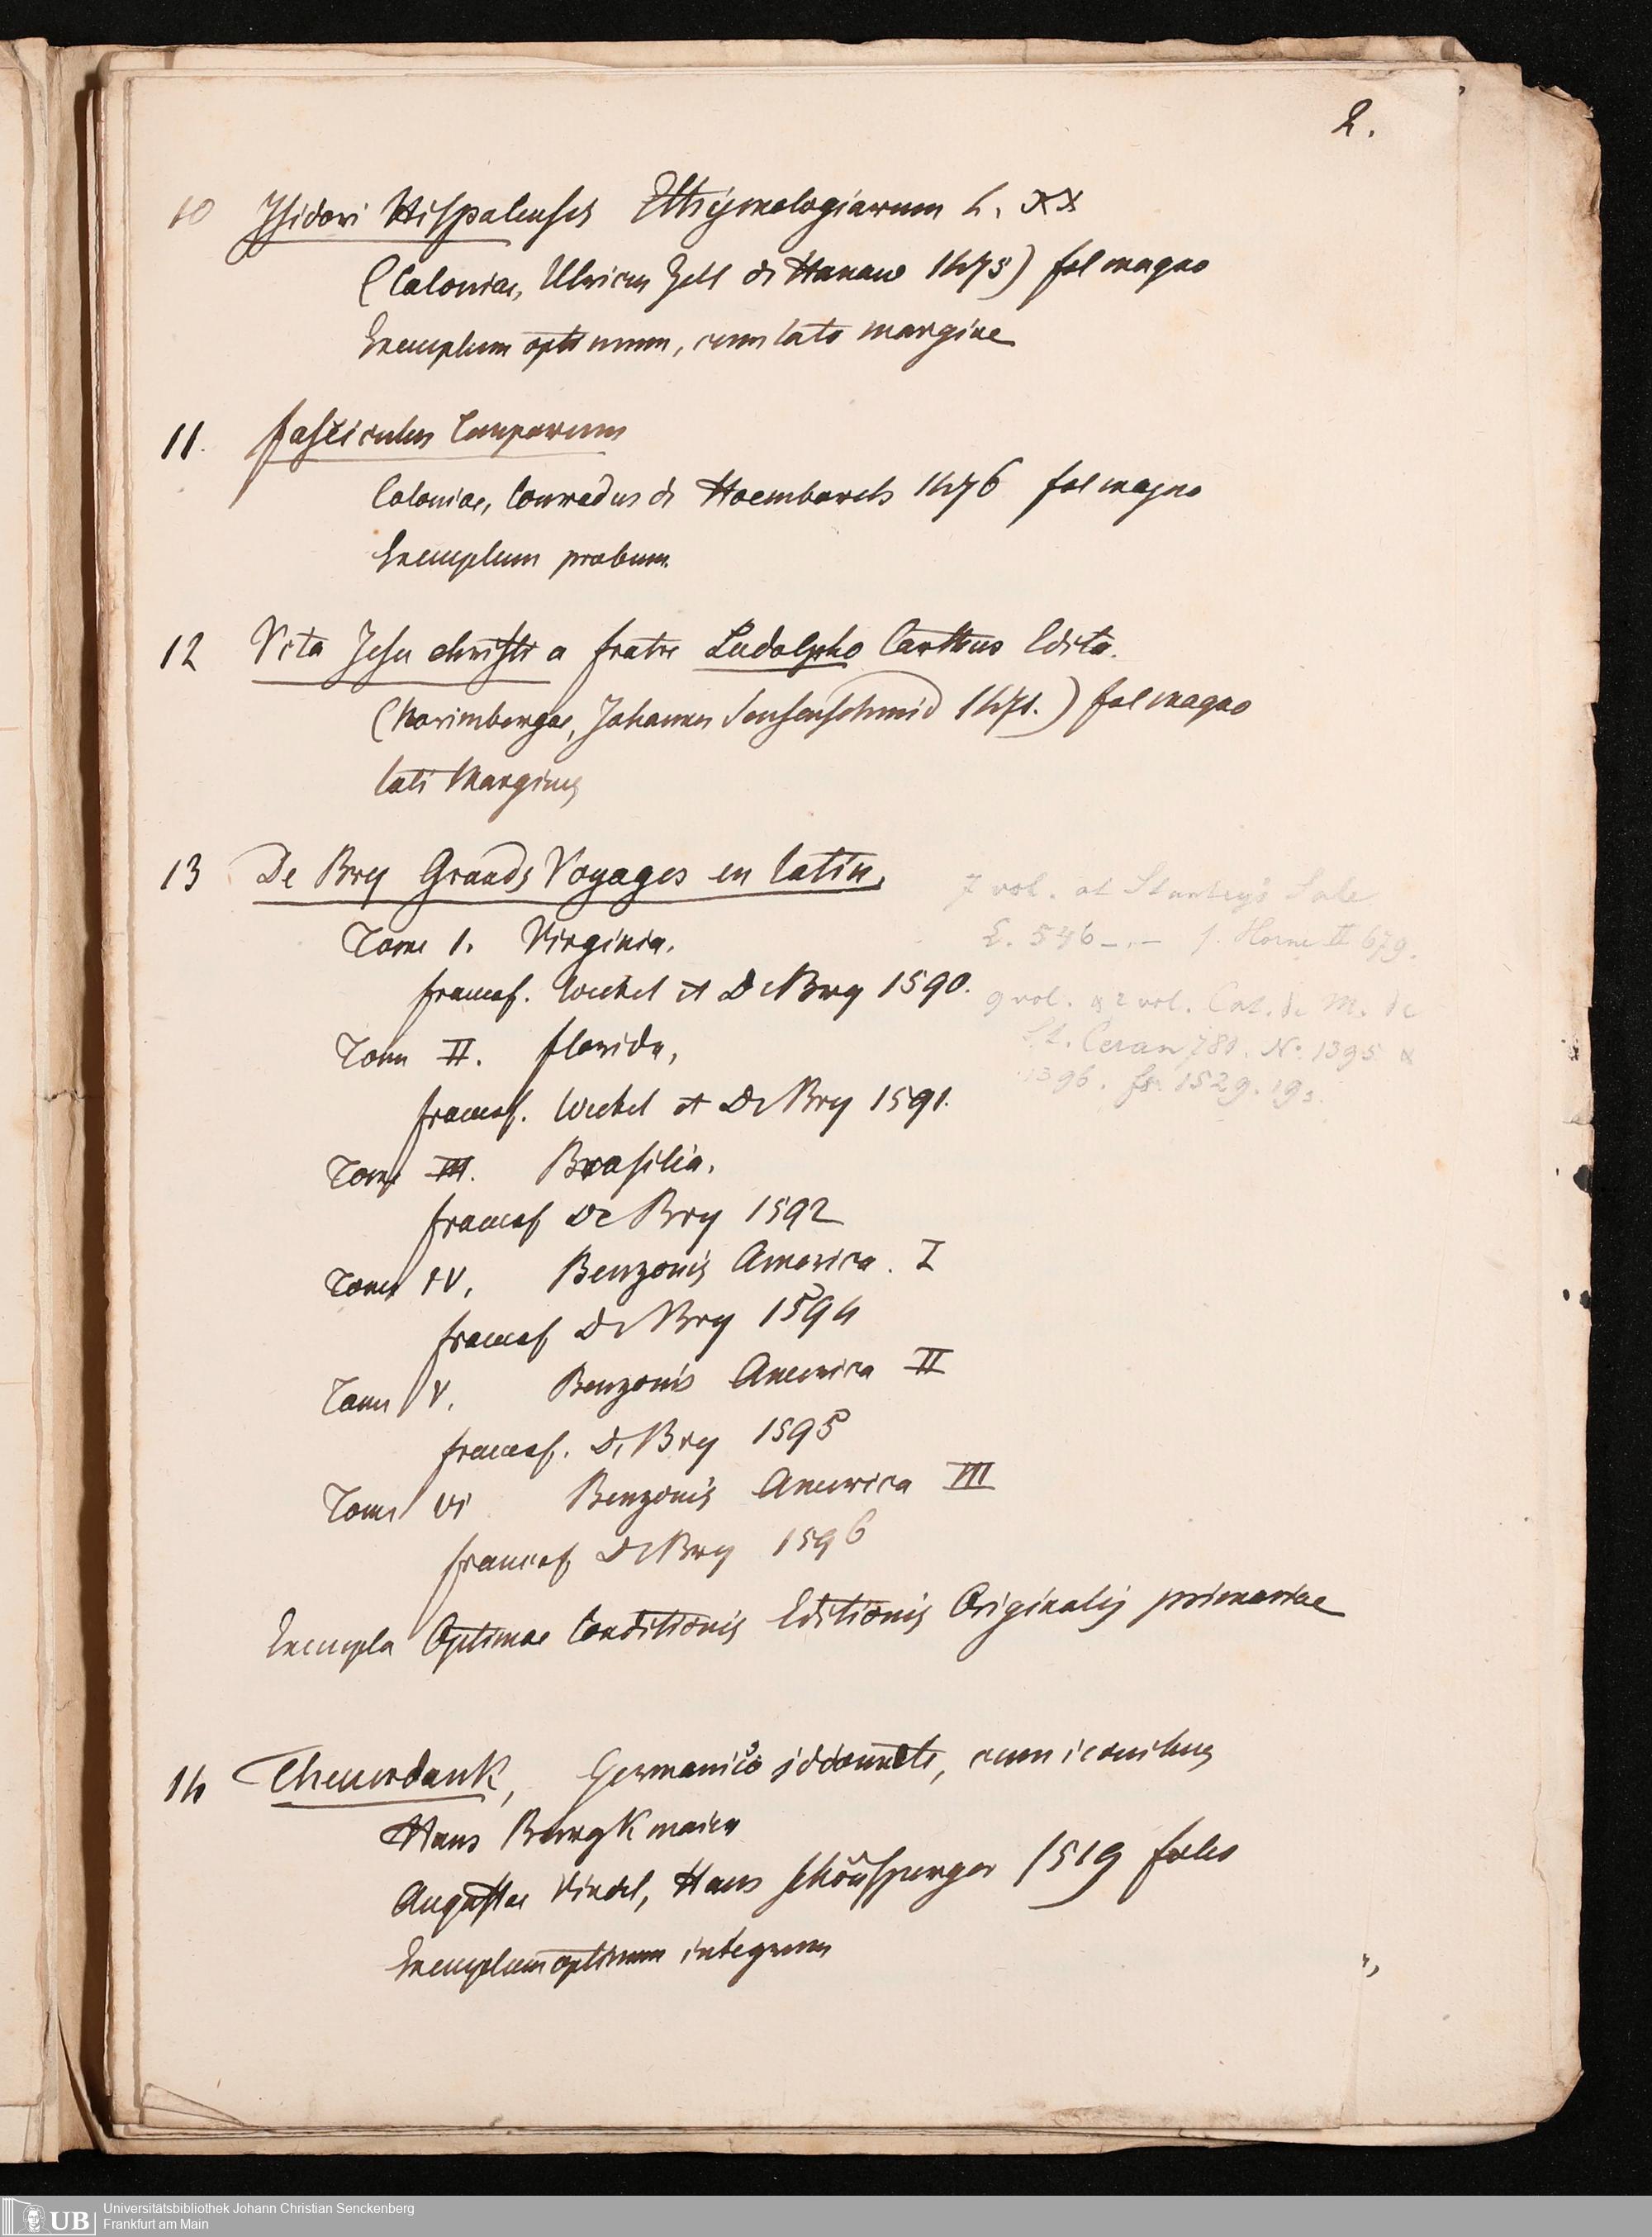 2.
10 Isidori Hispalensis Ethymologiarum L. XX
(Coloniae, Ulricus Zell de Hanaw 1473) fol magno
Exemplum optimum, cum lato margine
11. fasciculus Temporum
Coloniae, Conradus de Hoemborch 1476 fol magno
Exemplum probum.
12 Vita Jesu christi a fratre Ludolpho Carthus Edita.
(Norimbergae, Johannes Sensenschmid 1471.) fol magno
lati Marginis
13 De Bry Grands Voyages en latin.
7 vol. at Stanley's Sale.
£. 546 -.- f. Horne II 679.
9 vol. & 2 vol. Cat. de M. de
St. Ceran 780. No. 1395 &
1396. fr. 1529. 19s.
Tome 1. Virginia.
francof. Wechel et De Bry 1590.
Tome II. florida,
francof. Wechel et De Bry 1591.
Tome III. Brasilia.
francof De Bry 1592
Tome IV. Benzonis America. I
francof De Bry 1594
Tome V. Benzonis America II
francof. De Bry 1595
Tome VI Benzonis America III
francof De Bry 1596
Exempla Optimae Conditionis Editionis Originalis primariae
14 Theuerdank, Germanico, cum iconibus
Hans Burgkmaier
Augustae Vindel, Hans Schönsperger 1519 folio
Exemplum optimum integrum
UB Universitätsbibliothek Johann Christian Senckenberg
Frankfurt am Main